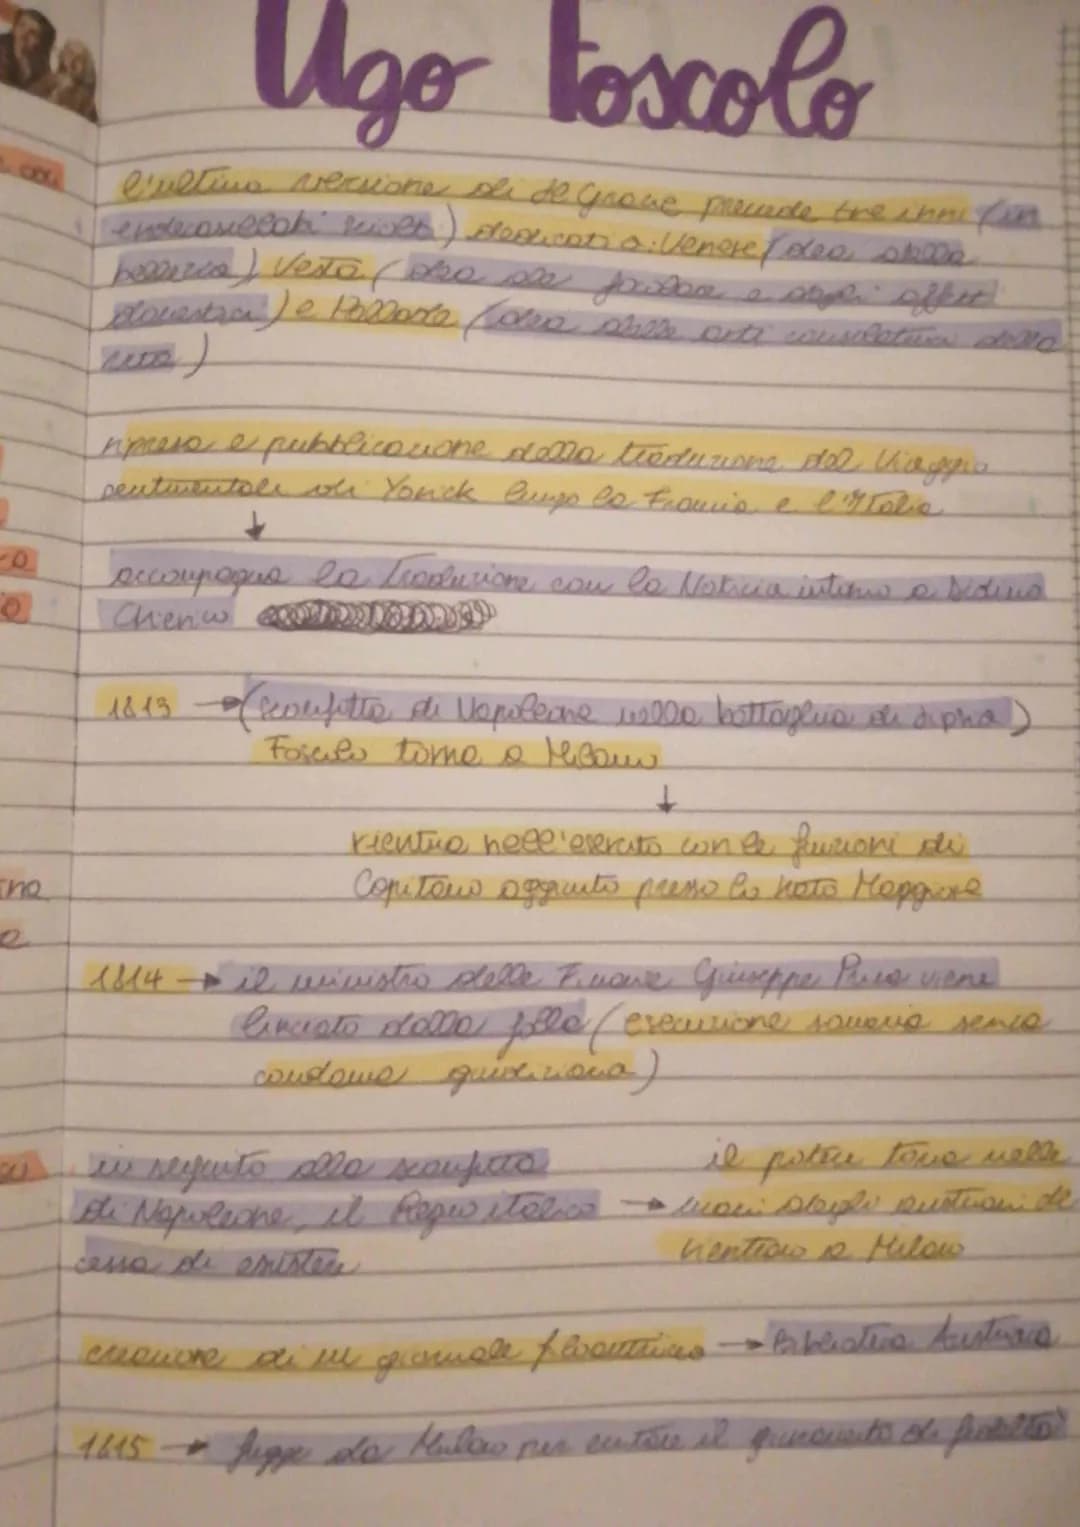 Ugo Foscolo
l'ultima versione di le Grazie prevede tre inni (in
endecasillabi sciolti) dedicati a: Venere (dea della
bellezza), Vesta (dea del focolare e degli affetti
domestici) e Pallade (dea delle arti consolatrici della
vita)
ripresa e pubblicazione della traduzione del Viaggio
sentimentale di Yorick lungo la Francia e l'Italia
↓
accompagna la traduzione con la Notizia intorno a Didimo
Chierico
1813 → (sconfitta di Napoleone nella battaglia di Lipsia)
Foscolo torna a Milano
↓
rientra nell'esercito con le funzioni di
Capitano aggiunto presso lo Stato Maggiore
1814 → il ministro delle Finanze Giuseppe Prina viene
linciato dalla folla (esecuzione sommaria senza
condanna giudiziaria)
in seguito alla sconfitta
di Napoleone, il Regno italico →
cessa di esistere
il potere torna nelle
mani degli austriaci che
rientrano a Milano
creazione di un giornale filoaustriaco → Biblioteca Austriaca
1815 → fugge da Milano per evitare il giuramento di fedeltà